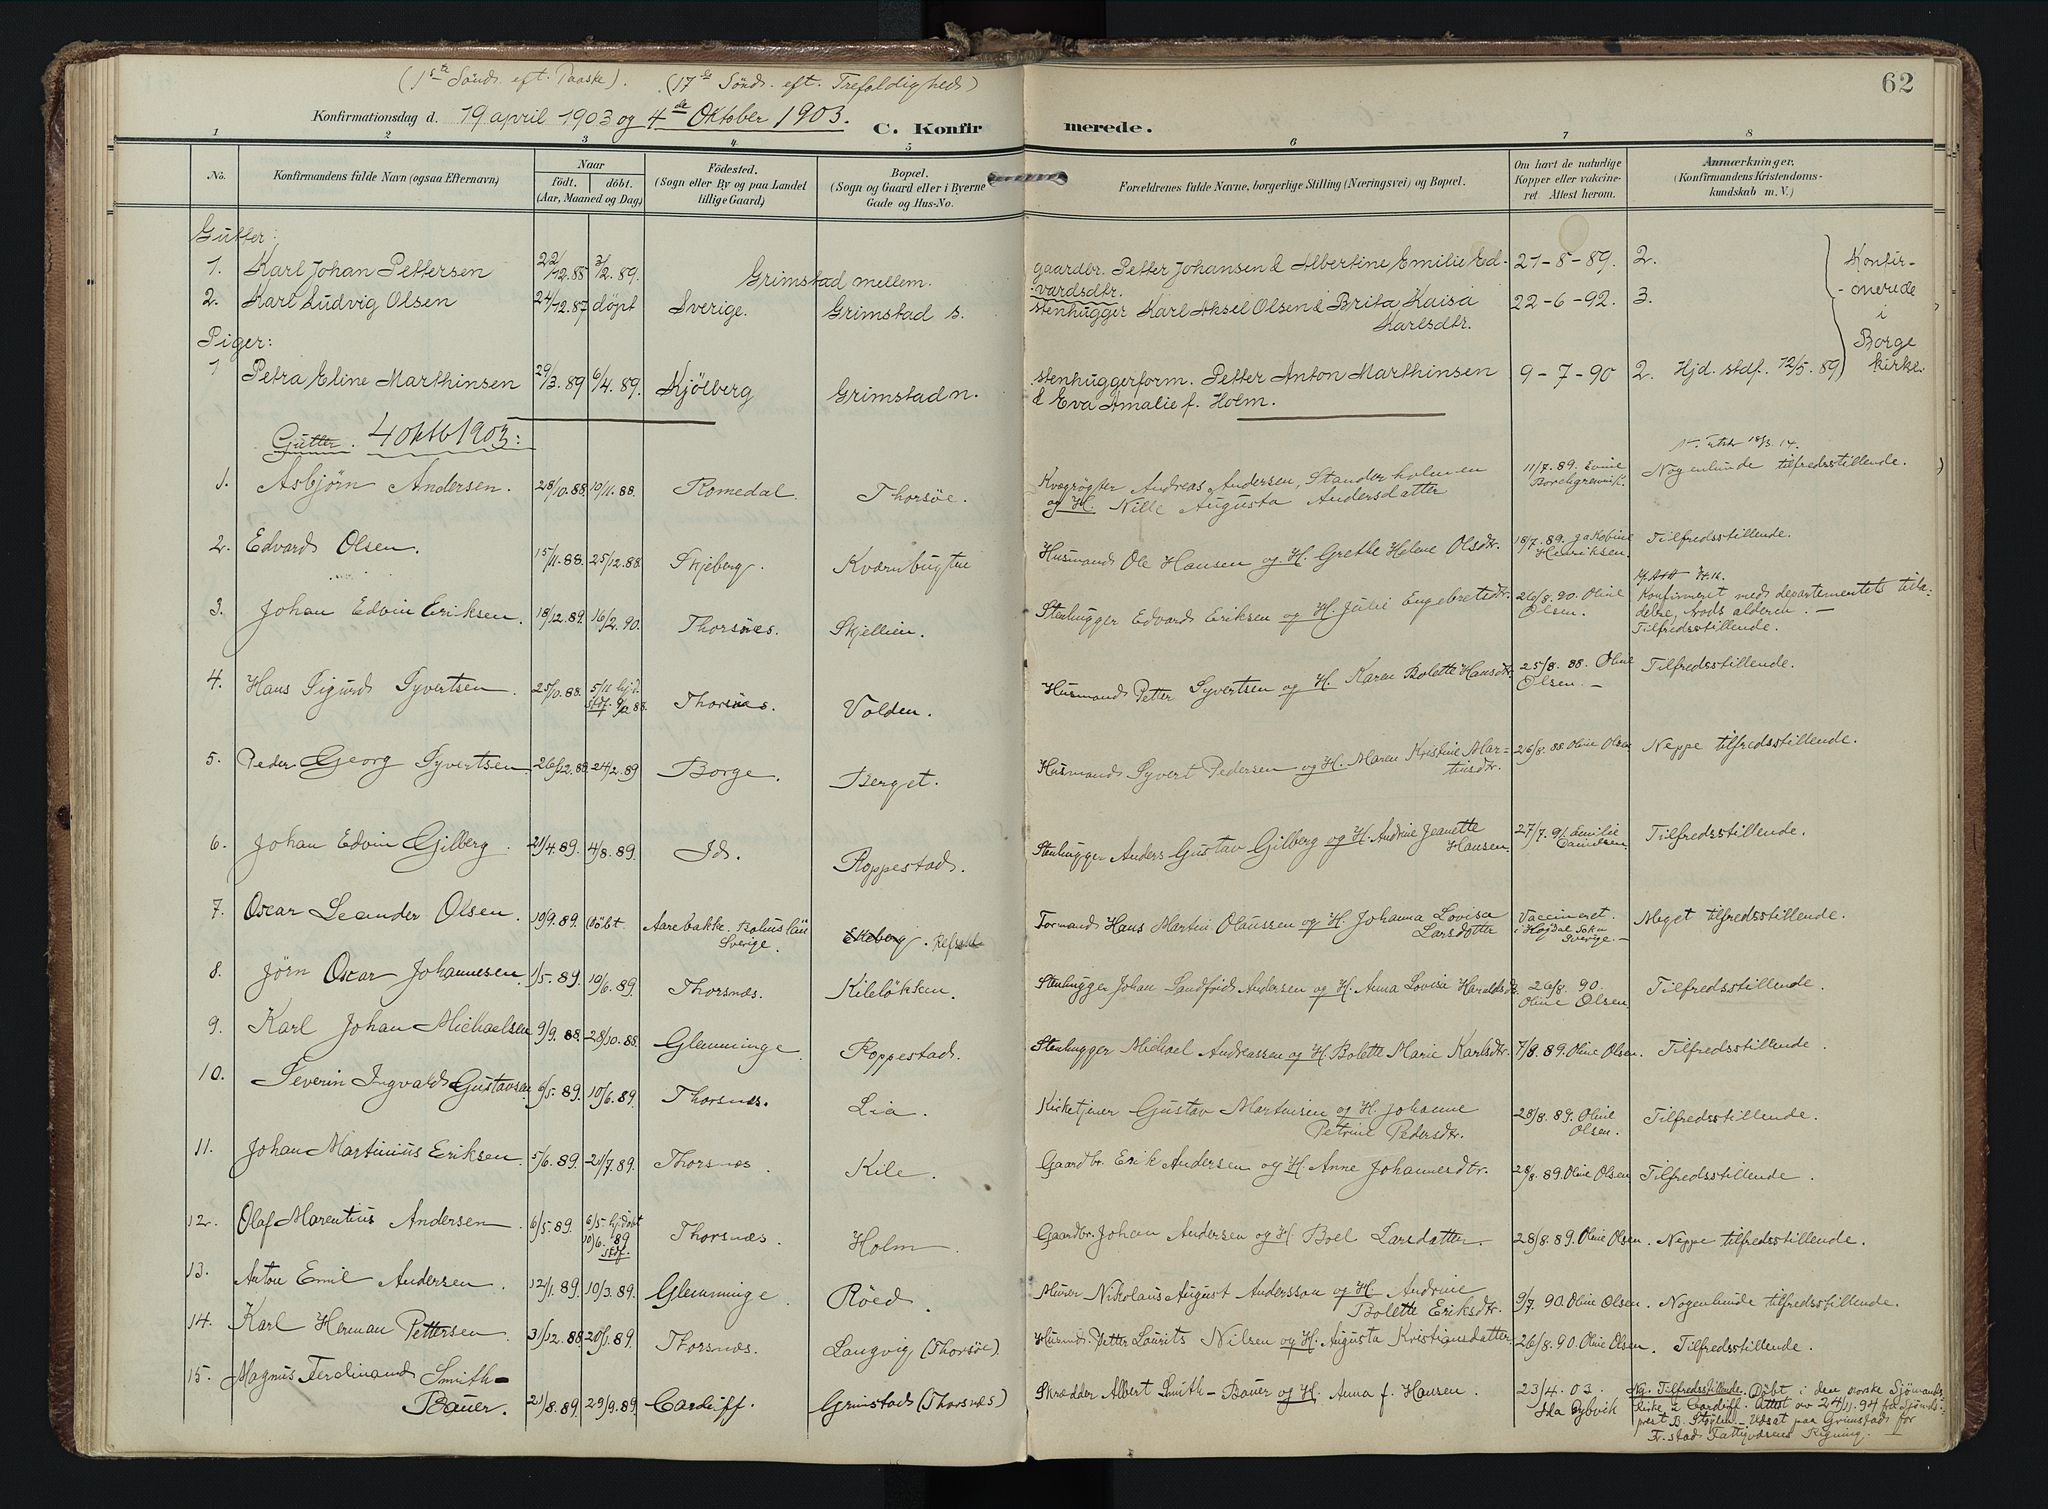 (1ste Sönd. eft. Paaske). (17de Sönd. eft. Trefoldigheds)
62
Konfirmationsdag d. 19 april 1903 og 4de Oktober 1903. C. Konfirmerede.
1 2 3 4 5 6 7 8
No. Konfirmandens fulde Navn (ogsaa Efternavn). Naar födt. döbt. (Aar, Maaned og Dag) Födested. (Sogn eller By og paa Landet tillige Gaard) Bopæl. (Sogn og Gaard eller i Byerne Gade og Hus-No. Forældrenes fulde Navne, borgerlige Stilling (Næringsvei) og Bopæl. Om havt de naturlige Kopper eller vakcineret Attest herom. Anmærkninger. (Konfirmandens Kristendomskundskab m. V.)
Gutter:
1. Karl Johan Pettersen 22/12.88 3/2.89. Grimstad mellem. gaardbr. Petter Johansen & Albertine Emilie Edvardsdtr. 21-8-89. 2.
2. Karl Ludvig Olsen 24/12.87 döpt Sverige. Grimstad s. stenhugger Karl Aksel Olsen & Brita Kaisa Karlsdtr. 22-6-92. 3.
Konfirmerede i Borge kirke.
Piger:
1 Petra Eline Marthinsen 29/3.89 6/4.89. Kjölberg Grimstad n. stenhuggerform. Petter Anton Marthinsen & Eva Amalie f. Holm. 9-7-90 2. Hjd. stdf. 12/5.89
Gutter. 4 oktb 1903:
1. Asbjörn Andersen. 28/10.88 10/11.88. Romedal. Thorsöe. Kvægrögter Andreas Andersen, Standerholmen og H. Nille Augusta Andersdatter 11/7.89. Evine Borchgrevink. Nogenlunde tilfredsstillende.
2. Edvard Olsen. 15/11.88. 25/12.88. Skjeberg. Kværnbugten Husmand Ole Hansen og H. Grethe Helene Olsdtr. 18/7.89. Jakobine Henriksen. Tilfredsstillende.
3. Johan Edvin Eriksen. 18/12.89. 16/2.90. Thorsnæs. Skjellien. Stenhugger Edvard Eriksen og H. Julie Engebretsdtr. 26/8.90. Oline Olsen. Konfirmeret med departementets tilladelse, trods alderen. — Tilfredsstillende.
4. Hans Sigurd Syvertsen. 25/10.88. 5/11 hjd. stdf. 9/12 88. Thorsnæs. Volden. Husmand Petter Syvertsen og H. Karen Bolette Hansdtr. 25/8.88. Oline Olsen. — Tilfredsstillende.
5. Peder Georg Syvertsen. 26/12.88. 24/2.89 Borge. Berget. Husmand Syvert Pedersen og H. Maren Kristine Martinsdtr. 26/8.88 Oline Olsen Neppe tilfredsstillende.
6. Johan Edvin Gilberg. 21/4.89. 4/8.89. Id. Roppestad. Stenhugger Anders Gustav Gilberg og H. Andrine Jeanette Hansen. 27/7.91. Emilie Danielsen. Tilfredsstillende.
7. Oscar Leander Olsen. 19/9.89. Döbt. Aarebakke. Bohuslän Sverige. Ekeberg. Refsahl Formand Hans Martin Olaussen og H. Johanna Lovisa Larsdotter Vaccineret i Hogdal Sokn Sverige. — Meget tilfredsstillende.
8. Jörn Oscar Johannesen 1/5.89. 10/6.89. Thorsnæs. Kilelökken. Stenhugger Johan Sandfrid Andersen og H. Anna Lovisa Haraldsdtr. 26/8.90. Oline Olsen Tilfredsstillende.
9. Karl Johan Michaelsen 9/9.88. 28/10.88. Glemminge. Roppestad. Stenhugger Michael Andreassen og H. Bolette Marie Karlsdtr. 7/8.89. Oline Olsen. Tilfredsstillende.
10. Severin Ingvald Gustavsen. 6/5.89. 10/6.89. Thorsnæs. Lia. Kirketjener Gustav Martinsen og H. Johanne Petrine Pedersdtr. 28/8.89. Oline Olsen. Tilfredsstillende.
11. Johan Martinius Eriksen. 5/6.89. 21/7.89. Thorsnæs. Kile. Gaardbr. Erik Andersen og H. Anne Johannesdtr. 28/8.89. Oline Olsen Tilfredsstillende.
12. Olaf Marentius Andersen 6/5.89. 6/5 hjdöbt 10/6.89 stdf. Thorsnæs. Holm. Gaardbr. Johan Andersen og H. Boel Larsdatter 28/8.89. Oline Olsen. Neppe tilfredsstillende.
13. Anton Emil Andersen. 12/1.89. 10/3.89. Glemminge. Röed. Murer Nikolaus August Andersson og H. Andrine Bolette Eriksdtr. 9/7.90. Oline Olsen. Nogenlunde tilfredsstillende.
14. Karl Herman Pettersen. 31/12.88. 20/1.89. Thorsnæs. Langvig (Thorsöe) Husmd. Petter Laurits Nilsen og H. Augusta Kristiansdatter 26/8.90. Oline Olsen. Tilfredsstillende.
15. Magnus Ferdinand Smith-Bauer. 21/8.89. 29/9.89. Cardiff. Grimstad (Thorsnæs) Skrædder Albert Smith-Bauer og H. Anna f. Hansen. 23/4.03. Ida Rybvik Ng. Tilfredsstillende. Döbt i den norske Sjömandskirke i Cardiff. Attest av 24/11.94 fra Sjömdsprest B. Udsat paa Grimstad for Fr.stad Fattigvæsens Regning.